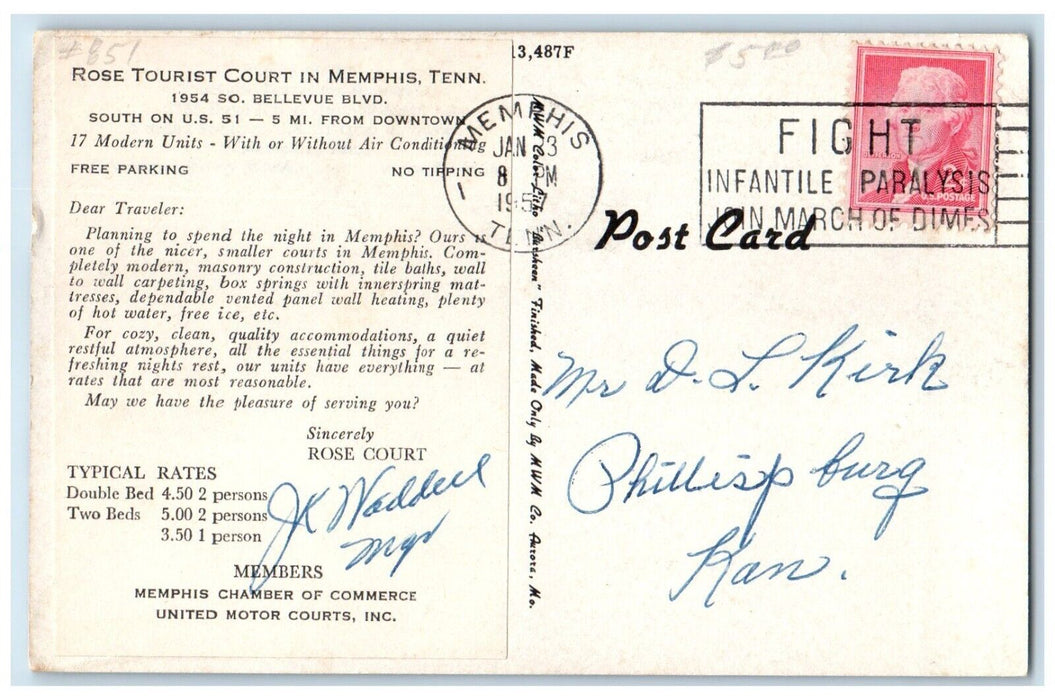 #851
ROSE TOURIST COURT IN MEMPHIS, TENN.
1954 SO. BELLEVUE BLVD.
SOUTH ON U.S. 51 — 5 MI. FROM DOWNTOWN
17 Modern Units - With or Without Air Conditioning
FREE PARKING NO TIPPING
Dear Traveler:
Planning to spend the night in Memphis? Ours is
one of the nicer, smaller courts in Memphis. Com-
pletely modern, masonry construction, tile baths, wall
to wall carpeting, box springs with innerspring mat-
tresses, dependable vented panel wall heating, plenty
of hot water, free ice, etc.
For cozy, clean, quality accommodations, a quiet
restful atmosphere, all the essential things for a re-
freshing nights rest, our units have everything — at
rates that are most reasonable.
May we have the pleasure of serving you?
Sincerely
ROSE COURT
TYPICAL RATES
Double Bed 4.50 2 persons
Two Beds 5.00 2 persons
3.50 1 person
JK Waddell
Mgr
MEMBERS
MEMPHIS CHAMBER OF COMMERCE
UNITED MOTOR COURTS, INC.
13,487F
$5.00
MWM Color-Litho "Finished, Made Only By MWM Co. Aurora, Mo.
MEMPHIS
JAN 3
8 PM
1957
TENN.
FIGHT
INFANTILE PARALYSIS
JOIN MARCH OF DIMES
U.S. POSTAGE
Post Card
Mr D. L. Kirk
Phillispburg
Kan.